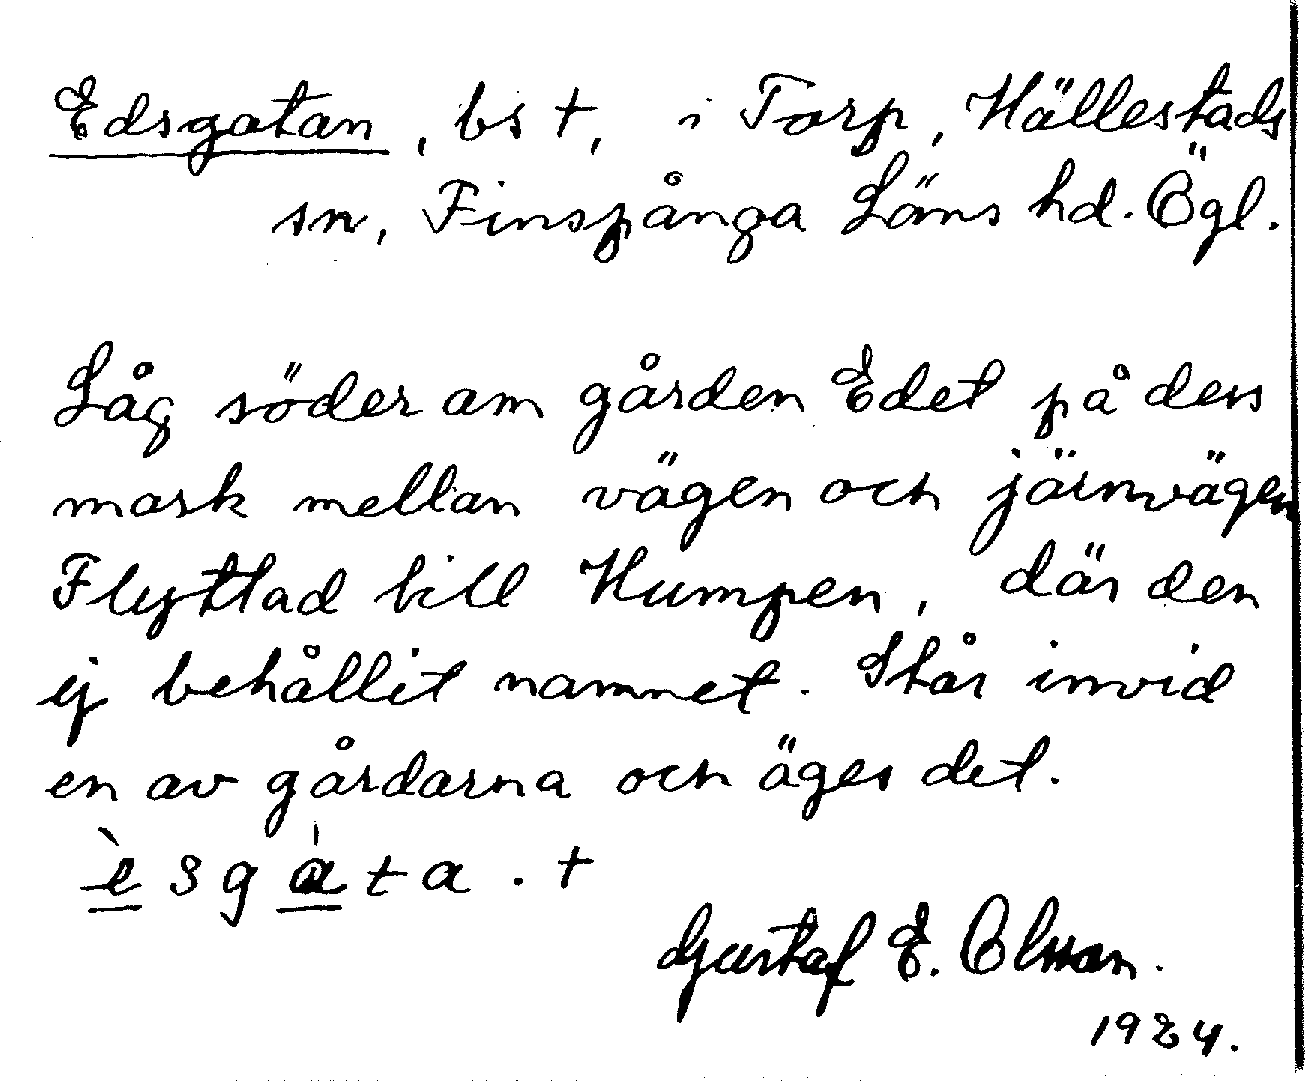 Edsgatan, bs †, i Torp, Hällestads
sn, Finspånga Läns hd. Ögl.
Låg söder om gården Edet på dess
mark mellan vägen och järnvägen
Flyttad till Humpen, där den
ej behållit namnet. Står invid
en av gårdarna och äges det.
è s g à t a . †
Gustaf E. Olsson.
1924.